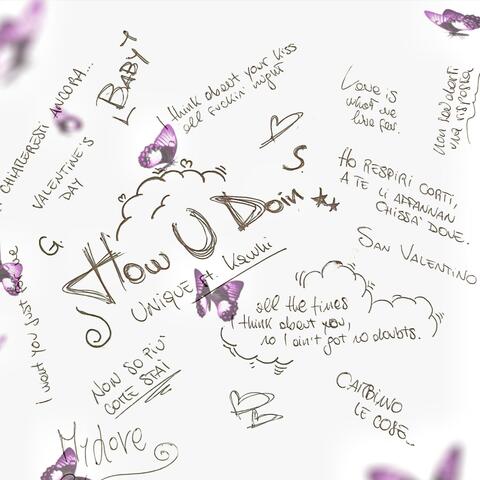 BABY
I think about your kiss
all fuckin' night
Love is
what we
live for.
non hai darti
una risposta
CHIATTERESTI ANCORA...
VALENTINE'S
DAY
HO RESPIRI CORTI,
A TE LI AFFANNAN
CHISSÀ DOVE.
S.
G.
How U Doin
UNIQUE ft. Ksuuki
SAN VALENTINO
I want you just for me
all the times
I think about you,
so I ain't got no doubts.
NON SO PIÙ
COME STAI
CAMBIANO
LE COSE...
Mydove